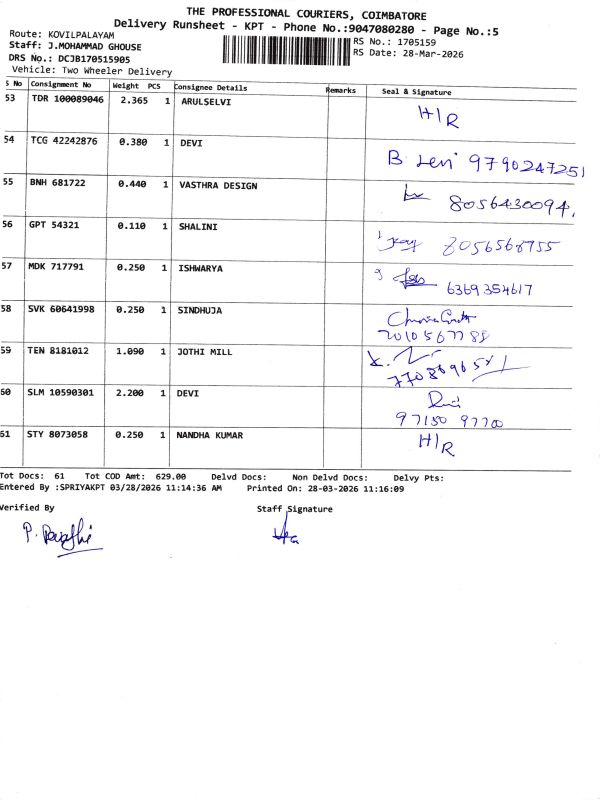 THE PROFESSIONAL COURIERS, COIMBATORE
Delivery Runsheet - KPT - Phone No.:9047080280 - Page No.:5
Route: KOVILPALAYAM
Staff: J.MOHAMMAD GHOUSE
DRS No.: DCJB170515905
Vehicle: Two Wheeler Delivery
RS No.: 1705159
RS Date: 28-Mar-2026
S No Consignment No Weight PCS Consignee Details Remarks Seal & Signature
53 TDR 100089046 2.365 1 ARULSELVI H/R
54 TCG 42242876 0.380 1 DEVI B 9790247251
55 BNH 681722 0.440 1 VASTHRA DESIGN 8056430094,
56 GPT 54321 0.110 1 SHALINI 8056568755
57 MDK 717791 0.250 1 ISHWARYA 6369354617
58 SVK 60641998 0.250 1 SINDHUJA
59 TEN 8181012 1.090 1 JOTHI MILL
60 SLM 10590301 2.200 1 DEVI 97150 97700
61 STY 8073058 0.250 1 NANDHA KUMAR H/R
Tot Docs: 61 Tot COD Amt: 629.00 Delvd Docs: Non Delvd Docs: Delvy Pts:
Entered By :SPRIYAKPT 03/28/2026 11:14:36 AM Printed On: 28-03-2026 11:16:09
Verified By Staff Signature